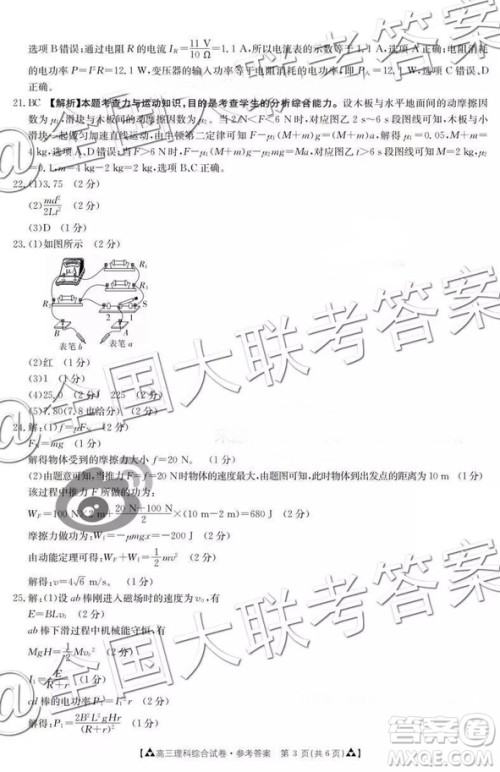 选项B错误;通过电阻R的电流I_R=11 V/10 Ω=1.1 A,所以电流表的示数等于1.1 A,选项A正确;电阻消耗
的电功率P=I²R=12.1 W,变压器的输入功率等于电阻R消耗的电功率,即P入=P=12.1 W,选项C错误、D
正确。
21.BC 【解析】本题考查力与运动知识,目的是考查学生的分析综合能力。设木板与水平地面间的动摩擦因
数为μ₁,滑块与木板间的动摩擦因数为μ,当2 N<F≤6 N时,对应图乙2 s~6 s段图线可知,木板与小
滑块一起做匀加速直线运动,由牛顿第二定律可知F-μ₁(M+m)g=(M+m)a,解得μ₁=0.05,M+m=
4 kg,选项A、D错误;当F>6 N时,F-μ₁(M+m)g-μmg=Ma,对应图乙6 s后段图线可知M=2 kg,μ
=0.1,m=2 kg,选项B、C正确。
22.(1)3.75 (2分)
(2)md²/2Lt² (2分)
23.(1)如图所示 (2分)
R₁
B A 2 1 S
表笔b 表笔a
(2)红 (1分)
(3)1 (1分)
(4)25.0 (1分) 225 (2分)
(5)7.80(7.8也给分) (2分)
24.解:(1)f=μF_N (2分)
F_N=mg (1分)
解得物体受到的摩擦力大小f=20 N。 (1分)
(2)由题意可知,当推力F=20 N时物体的速度最大,由题图可知,此时物体到出发点的距离为10 m (2分)
该过程中推力F所做的功为:
W_F=100 N×2 m+(20 N+100 N)/2×(10 m-2 m)=680 J (2分)
摩擦力做功为:W_f=-μmgx=-200 J (2分)
由动能定理可得:W_F+W_f=1/2mv² (1分)
解得:v=4√6 m/s。 (1分)
25.解:(1)设ab棒刚进入磁场时的速度为v₀,有
E=BLv₀ (2分)
ab棒下滑过程中机械能守恒,有
MgH=1/2Mv₀² (1分)
I₁=E/(R+r) (1分)
cd棒的电功率P₁=I₁²r (1分)
解得:P₁=2B²L²gHr/(R+r)² (2分)
高三理科综合试卷·参考答案 第3页(共6页)
@全国大联考答案
@全国大联考答案
@全国大联考答案